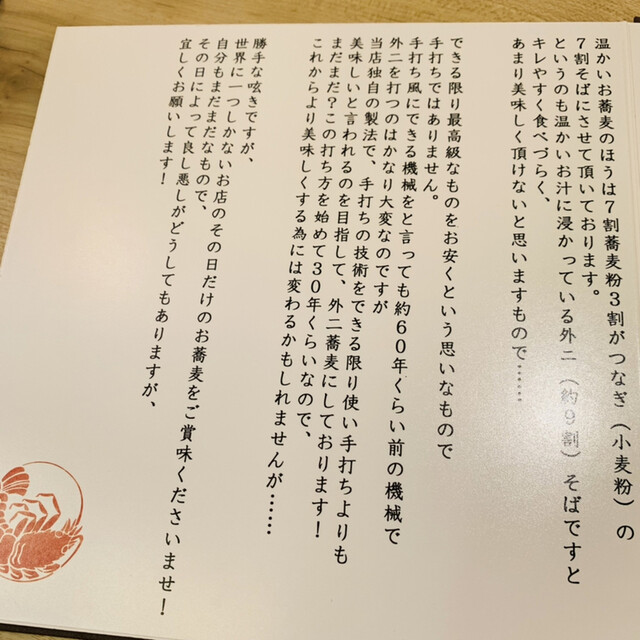 温かいお蕎麦のほうは７割蕎麦粉３割がつなぎ（小麦粉）の
７割そばにさせて頂いております。
というのも温かいお汁に浸かっている外二（約９割）そばですと
キレやすく食べづらく、
あまり美味しく頂けないと思いますもので……
できる限り最高級なものをお安くという思いなもので
手打ちではありません。
手打ち風にできる機械をと言っても約６０年くらい前の機械で
外二を打つのはかなり大変なのですが
当店独自の製法で、手打ちの技術をできる限り使い手打ちよりも
美味しいと言われるのを目指して、外二蕎麦にしております！
まだまだ？この打ち方を始めて３０年くらいなので、
これからより美味しくする為には変わるかもしれませんが……
勝手な呟きですが、
世界に一つしかないお店のその日だけのお蕎麦をご賞味くださいませ！
自分もまだまだなもので、
その日によって良し悪しがどうしてもありますが、
宜しくお願いします！